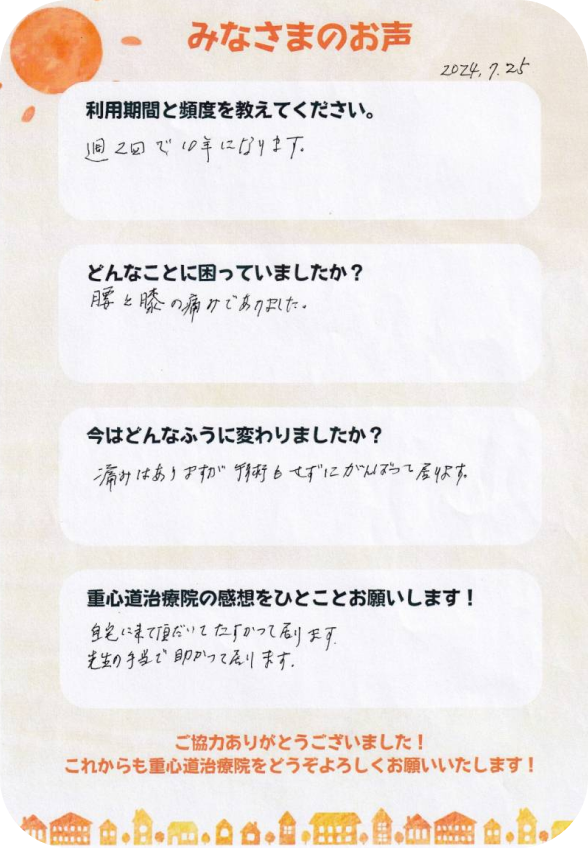 みなさまのお声
2024.7.25
利用期間と頻度を教えてください。
週2回で10年になります。
どんなことに困っていましたか？
腰と膝の痛みでありました。
今はどんなふうに変わりましたか？
痛みはありますが手術もせずにがんばって居ります。
重心道治療院の感想をひとことお願いします！
自宅に来て頂だいてたすかって居ります。
先生の手当で助かって居ります。
ご協力ありがとうございました！
これからも重心道治療院をどうぞよろしくお願いいたします！